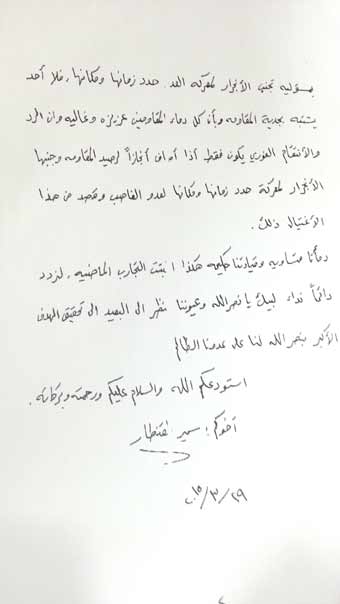 بمسؤولية تجنب الأنجرار لمعركة العدو حدد زمانها ومكانها، فلا أحد
يشتبه بجدية المقاومه وبأن كل دماء المقاومين عزيزه وغاليه وان الرد
والأنتقام الفوري يكون فقط أذا أضاف أنجازاً لرصيد المقاومه وجنبها
الأنجرار لمعركة حدد زمانها ومكانها العدو الغاصب وقصد من هذا
الأغتيال ذلك.
دمائنا متساويه وقيادتنا حكيمه هكذا اثبتت التجارب الماضيه، لنردد
دائماً نداء لبيك يا نصرالله وعيوننا تنظر الى البعيد الى تحقيق الهدف
الأكبر بنصر الله لنا على عدونا الظالم
استودعكم الله والسلام عليكم ورحمته وبركاته.
أخوكم: سمير القنطار
٢٩/٣/٢٠١٥